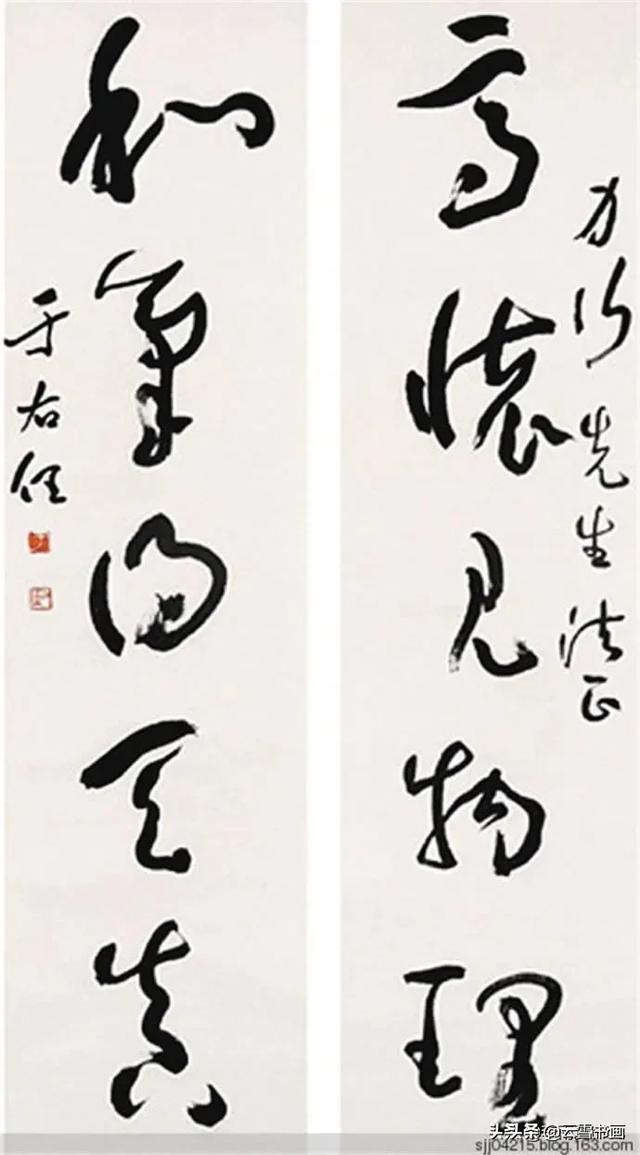 力行先生法正
高懷見物理
和氣得天真
于右任
头条
sjj04215.blog.163.com